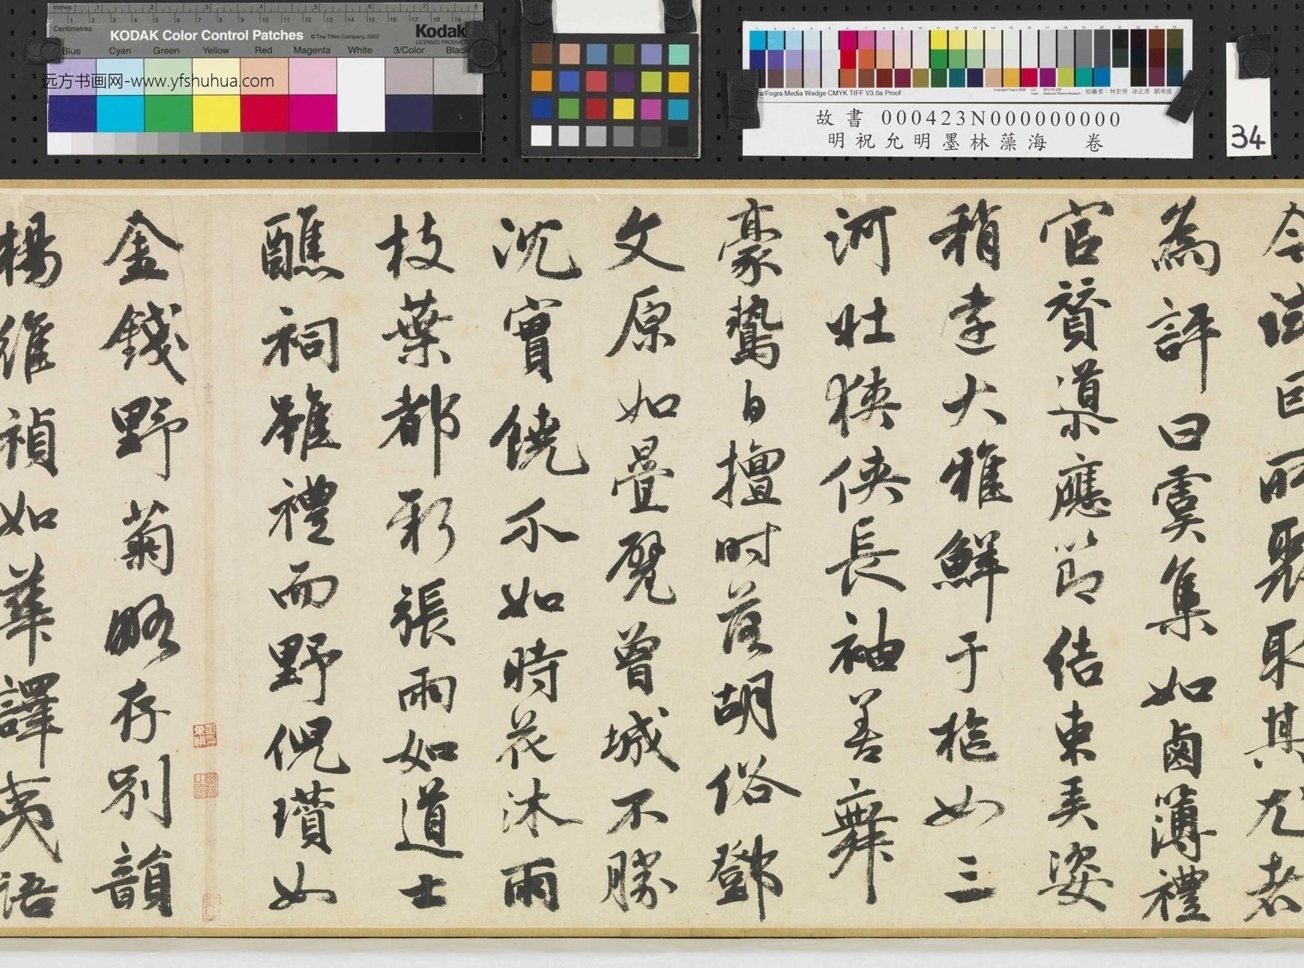 Inches 1 2 3 4 5 6 7 8
Centimetres 1 2 3 4 5 6 7 8 9 10 11 12 13 14 15 16 17 18 19
KODAK Color Control Patches
© The Tiffen Company, 2000
Kodak
LICENSED PRODUCT
Blue Cyan Green Yellow Red Magenta White 3/Color Black
远方书画网-www.yfshuhua.com
/Fogra Media Wedge CMYK TIFF V3.0a Proof
故書 000423N000000000
明祝允明墨林藻海 卷
34
今試臣所聚取其尤者
為評曰虞集如鹵簿禮
官贊導應節佶束美姿
稍遠大雅鮮于樞如三
河壯狹俠長袖善舞
豪鷙自擅時落胡俗鄧
文原如疊甓曾城不勝
沈實饒不如時花沐雨
枝葉都彩張雨如道士
醮祠雖禮而野倪瓚如
金錢野菊略存別韻
楊維禎如華譯夷語